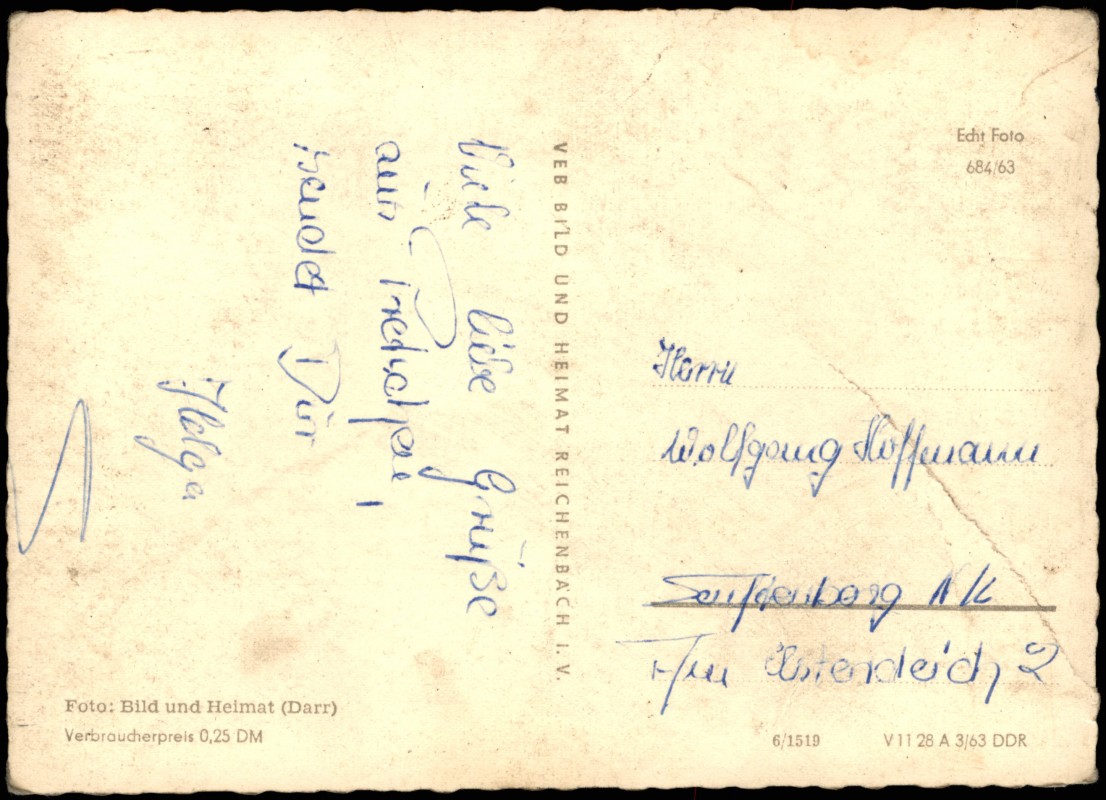 Viele liebe Grüße
aus
sendet Dir
Helga
VEB BILD UND HEIMAT REICHENBACH I. V.
Echt Foto
684/63
Herrn
Wolfgang Hoffmann
Senftenberg N/L
Am
2
Foto: Bild und Heimat (Darr)
Verbraucherpreis 0,25 DM
6/1519
V 11 28 A 3/63 DDR